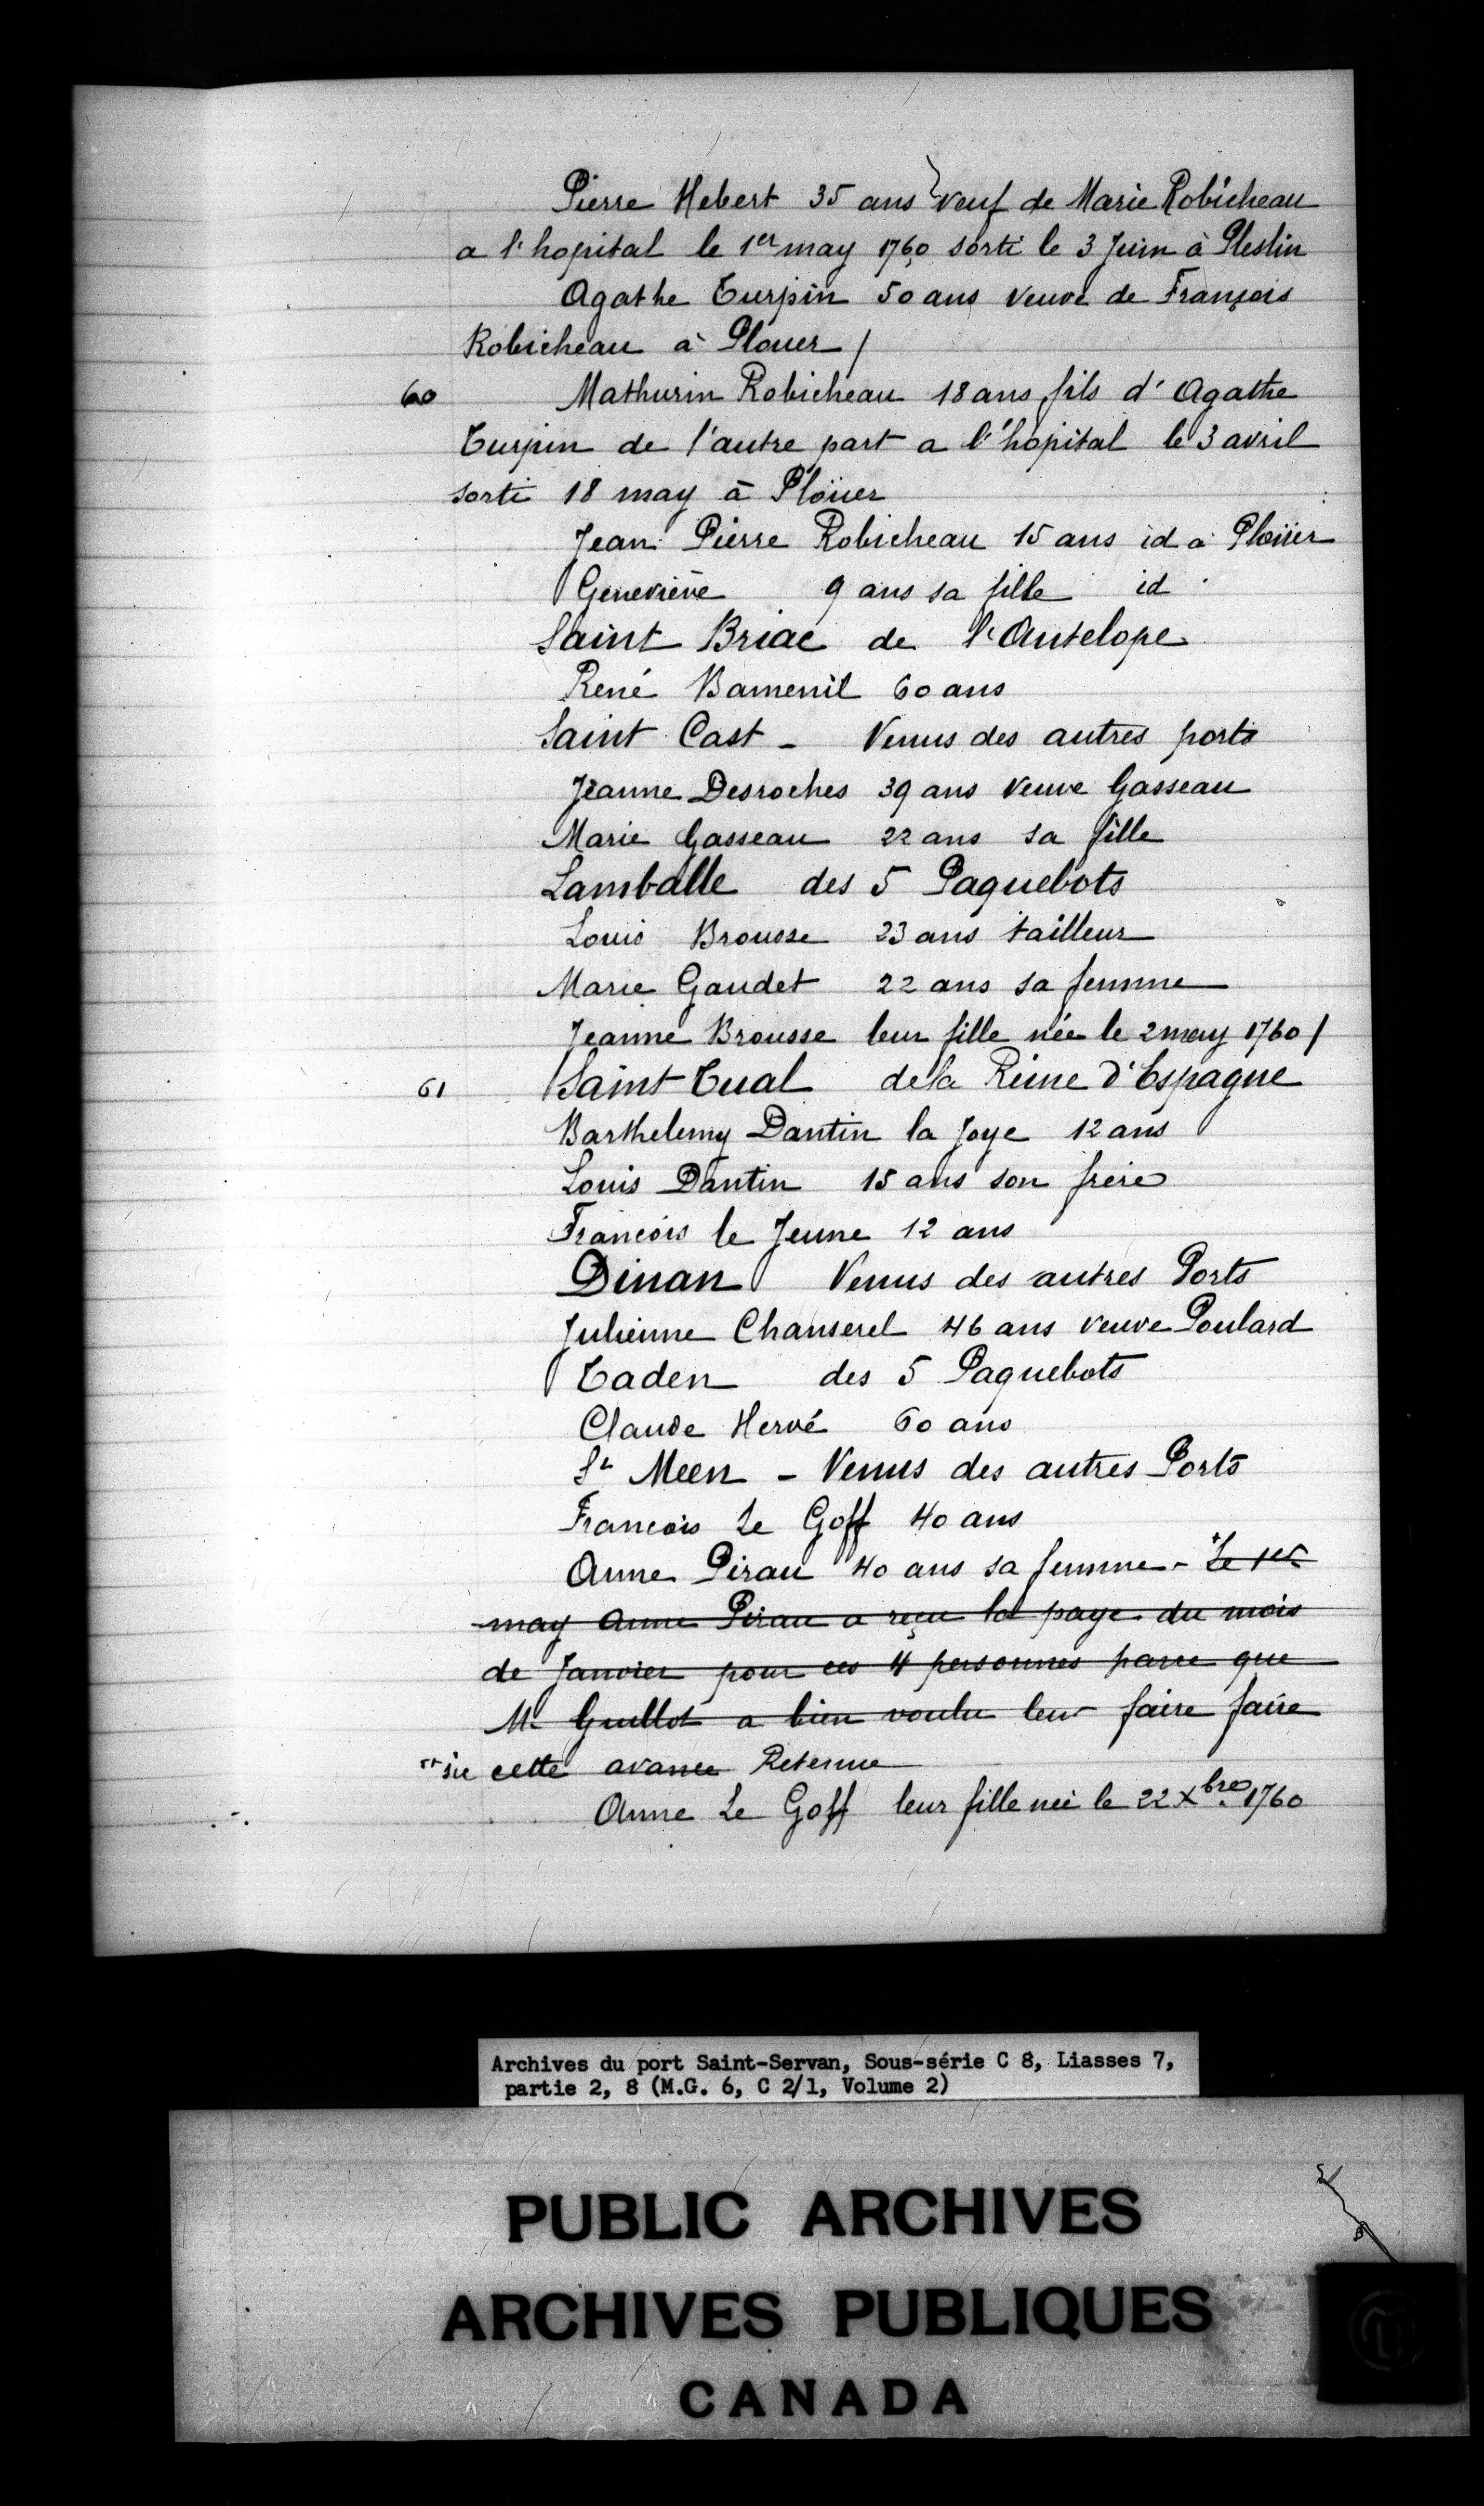 Pierre Hebert 35 ans veuf de Marie Robicheau
a l'hopital le 1er may 1760 sorti le 3 Juin à Pleslin
Agathe Turpin 50 ans veuve de François
Robicheau à Plouer /
60 Mathurin Robicheau 18 ans fils d'Agathe
Turpin de l'autre part a l'hôpital le 3 avril
sorti 18 may à Ploüer
Jean Pierre Robicheau 15 ans id à Ploüer
Geneviève 9 ans sa fille id
Saint Briac de l'Antelope
René Bamenil 60 ans
Saint Cast - Venus des autres ports
Jeanne Desroches 39 ans veuve Gasseau
Marie Gasseau 22 ans sa fille
Lamballe des 5 Paquebots
Louis Brousse 23 ans tailleur
Marie Gaudet 22 ans sa femme
Jeanne Brousse leur fille née le 2 may 1760 /
61 Saint Tual de la Reine d'Espagne
Barthelemy Dantin la Joye 12 ans
Louis Dantin 15 ans son frere
Francois le Jeune 12 ans
Dinan Venus des autres Ports
Julienne Chanserel 46 ans veuve Poulard
Taden des 5 Paquebots
Claude Hervé 60 ans
St Meen - Venus des autres Ports
Francois Le Goff 40 ans
Anne Pirau 40 ans sa femme - Le 1er
may Anne Pirau a reçu la paye du mois
de Janvier pour ces 4 personnes parce que
M. Guillot a bien voulu leur faire faire
sic cette avance Retenue
Anne Le Goff leur fille née le 22 Xbre 1760
Archives du port Saint-Servan, Sous-série C 8, Liasses 7,
partie 2, 8 (M.G. 6, C 2/1, Volume 2)
PUBLIC ARCHIVES
ARCHIVES PUBLIQUES
CANADA